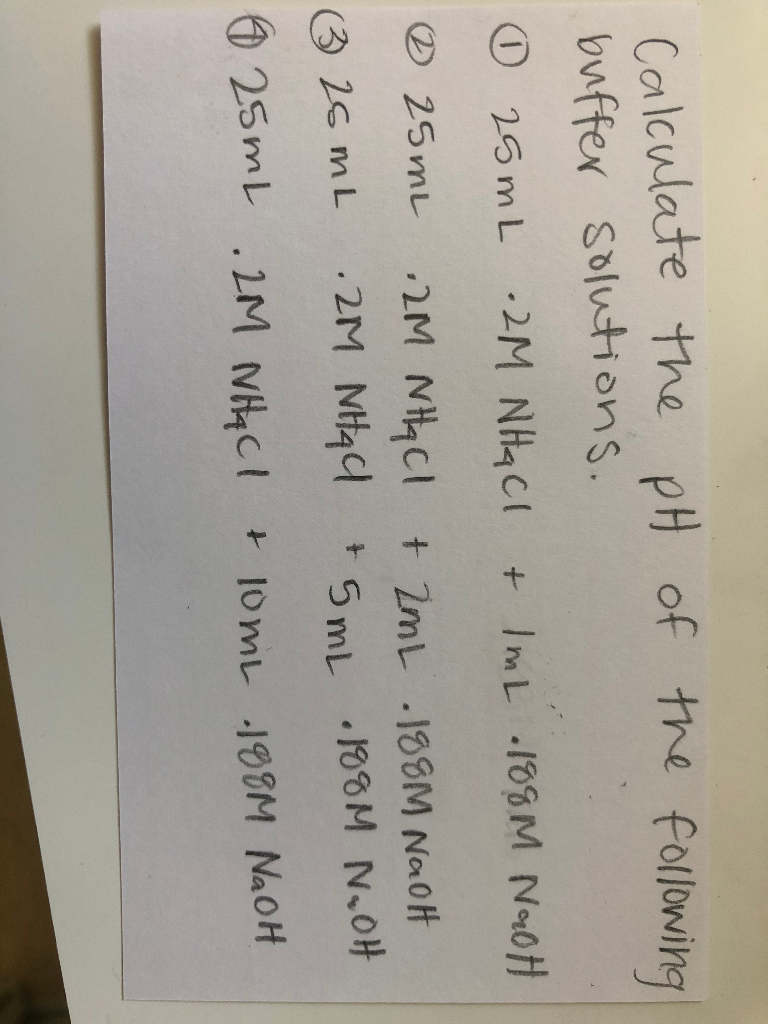 Calculate the pH of the following
buffer solutions.
① 25mL .2M NH4Cl + 1mL .188M NaOH
② 25mL .2M NH4Cl + 2mL .188M NaOH
③ 25mL .2M NH4Cl + 5mL .188M NaOH
④ 25mL .2M NH4Cl + 10mL .188M NaOH